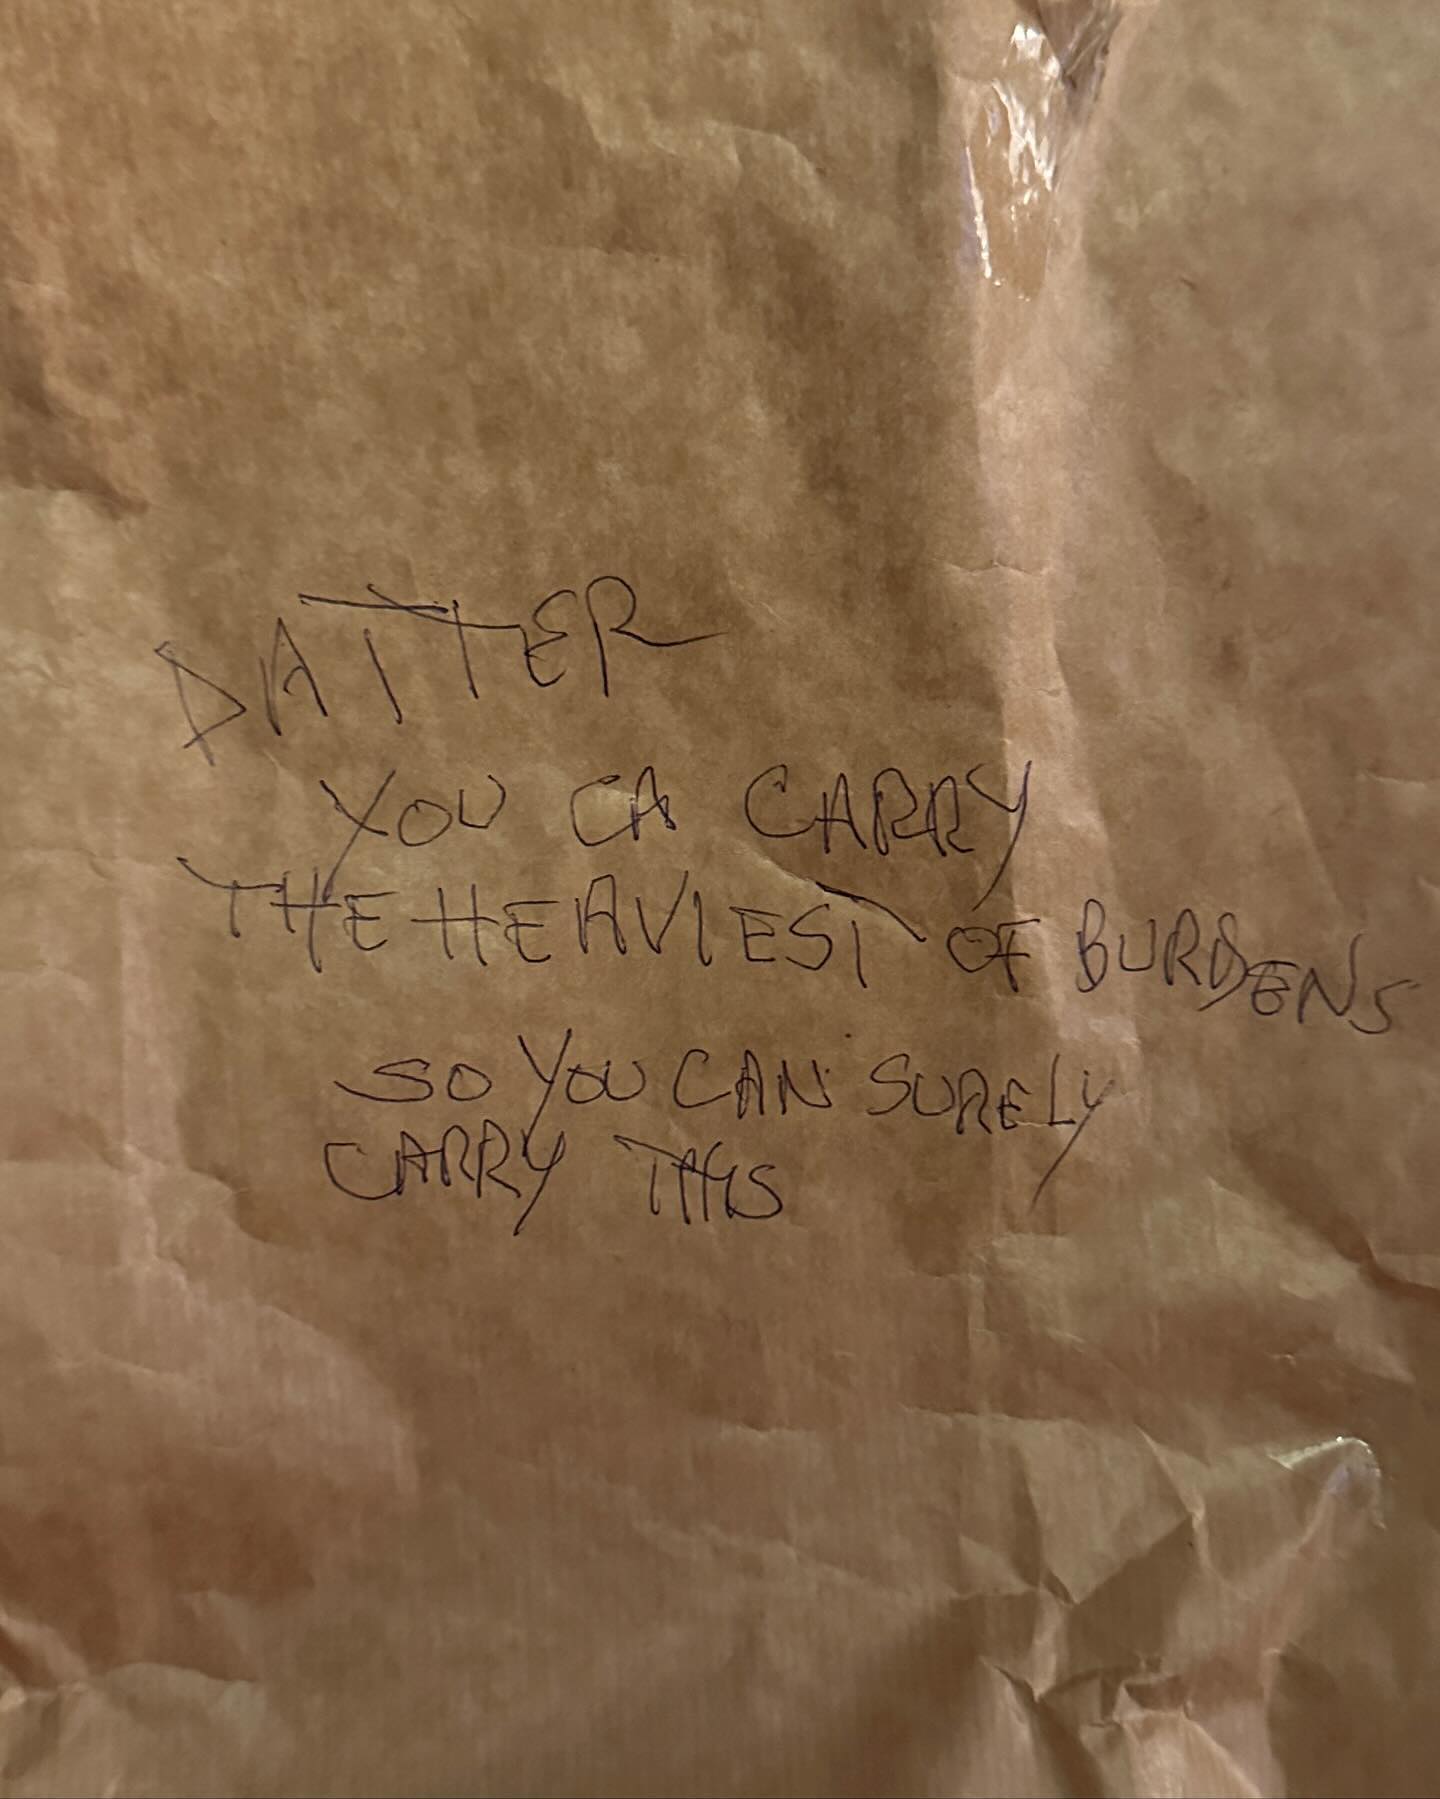 DATTER
YOU CA CARRY
THE HEAVIEST OF BURDENS
SO YOU CAN SURELY
CARRY THIS